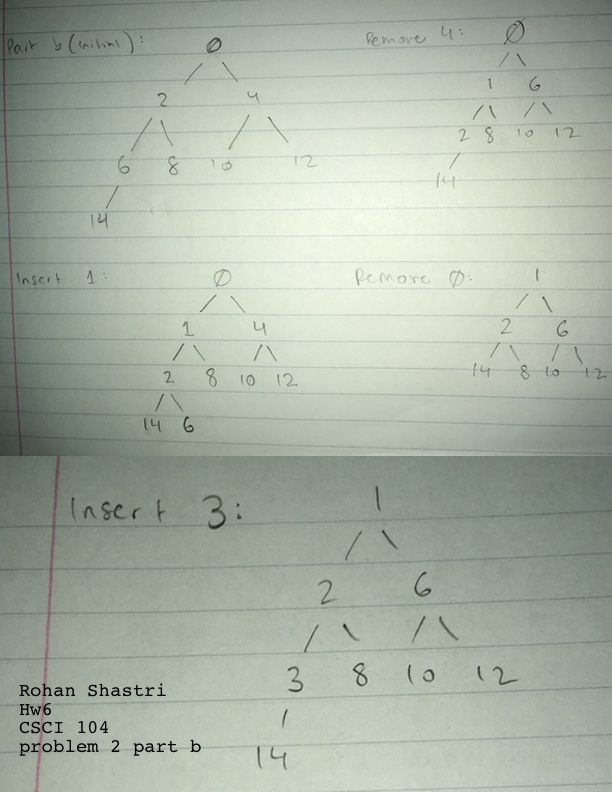 Part b (initial):
Ø
2 4
6 8 10 12
14
Remove 4:
Ø
1 6
2 8 10 12
14
Insert 1:
Ø
1 4
2 8 10 12
14 6
Remove Ø:
1
2 6
14 8 10 12
Insert 3:
1
2 6
3 8 10 12
14
Rohan Shastri
Hw6
CSCI 104
problem 2 part b